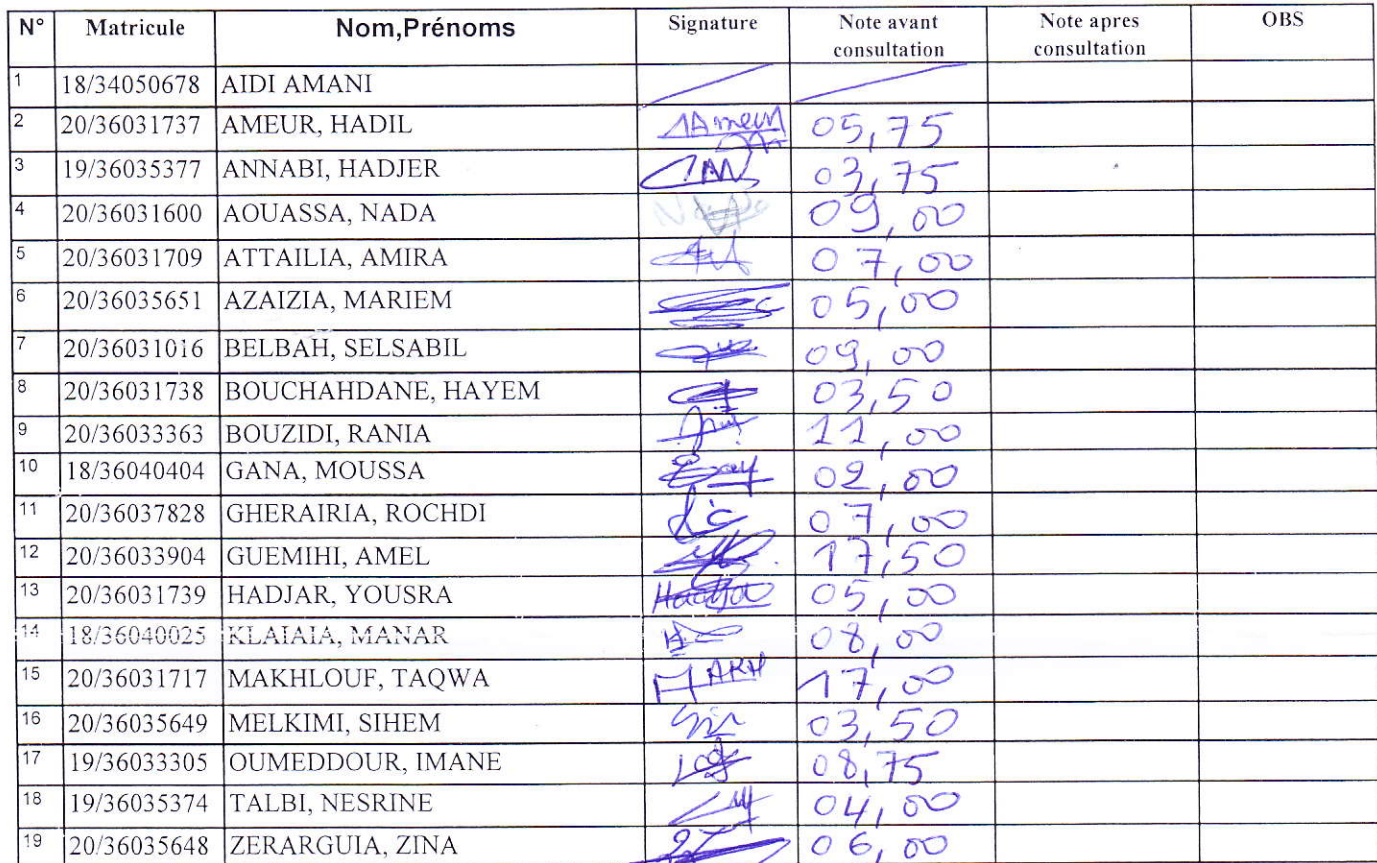 N° Matricule Nom,Prénoms Signature Note avant consultation Note apres consultation OBS
1 18/34050678 AIDI AMANI
2 20/36031737 AMEUR, HADIL 05,75
3 19/36035377 ANNABI, HADJER 03,75
4 20/36031600 AOUASSA, NADA 09,00
5 20/36031709 ATTAILIA, AMIRA 07,00
6 20/36035651 AZAIZIA, MARIEM 05,00
7 20/36031016 BELBAH, SELSABIL 09,00
8 20/36031738 BOUCHAHDANE, HAYEM 03,50
9 20/36033363 BOUZIDI, RANIA 11,00
10 18/36040404 GANA, MOUSSA 02,00
11 20/36037828 GHERAIRIA, ROCHDI 07,00
12 20/36033904 GUEMIHI, AMEL 17,50
13 20/36031739 HADJAR, YOUSRA 05,00
14 18/36040025 KLAIAIA, MANAR 08,00
15 20/36031717 MAKHLOUF, TAQWA MAKH 17,00
16 20/36035649 MELKIMI, SIHEM 03,50
17 19/36033305 OUMEDDOUR, IMANE 08,75
18 19/36035374 TALBI, NESRINE 04,00
19 20/36035648 ZERARGUIA, ZINA 06,00